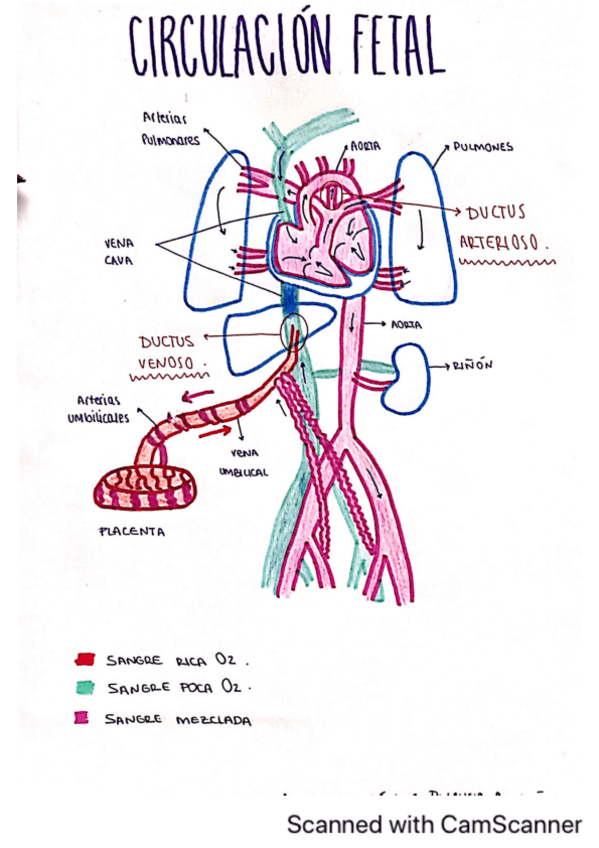 CIRCULACIÓN FETAL
Arterias
Pulmonares
AORTA
PULMONES
DUCTUS
ARTERIOSO.
VENA
CAVA
AORTA
DUCTUS
VENOSO.
RIÑÓN
Arterias
UMBILICALES
VENA
UMBILICAL
PLACENTA
SANGRE RICA O2.
SANGRE POCA O2.
SANGRE MEZCLADA
Scanned with CamScanner